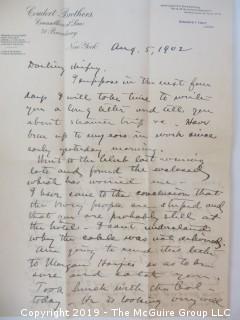 Coudert Brothers
Counsellors at Law
71 Broadway
New York Aug. 5, 1902
Darling wifey,
I suppose in the next four
days I will take time to write
you a long letter and tell you
about summer trip etc. Have
been up to my ears in work since
early yesterday morning.
Went to the club last evening
late and found the enclosed
which has worried me -
I have come to the conclusion that
the Navy people are stupid and
that you are probably still at
the hotel - I can't understand
why the cable was not delivered.
Am going to send this letter
to Morgan Harjes so as to be
sure and catch you.
Took lunch with the Col -
today. He is looking very well
Copyright 2019 - The McGuire Group